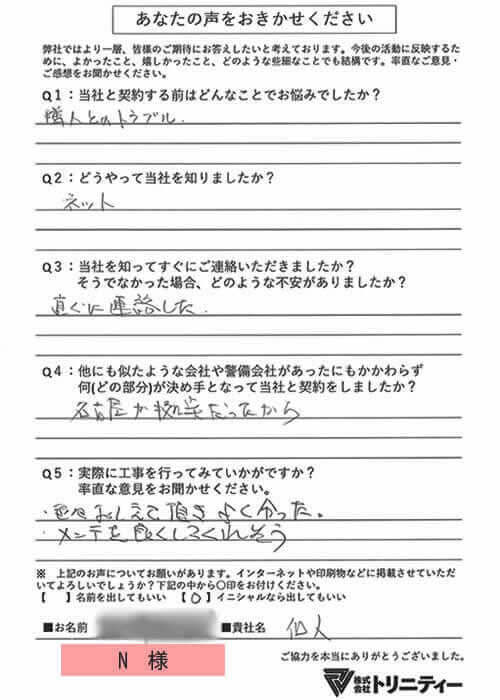 あなたの声をおきかせください
弊社ではより一層、皆様のご期待にお答えしたいと考えております。今後の活動に反映するた
めに、よかったこと、嬉しかったこと、どのような些細なことでも結構です。率直なご意見・
ご感想をお聞かせください。
Q1：当社と契約する前はどんなことでお悩みでしたか？
隣人とのトラブル.
Q2：どうやって当社を知りましたか？
ネット
Q3：当社を知ってすぐにご連絡いただきましたか？
そうでなかった場合、どのような不安がありましたか？
直ぐに連絡した.
Q4：他にも似たような会社や警備会社があったにもかかわらず
何(どの部分)が決め手となって当社と契約をしましたか？
名古屋が拠点だったから
Q5：実際に工事を行ってみていかがですか？
率直な意見をお聞かせください。
おしえて頂きよく分った。
・メンテも良くしてくれそう
※ 上記のお声についてお願いがあります。インターネットや印刷物などに掲載させていただ
いてよろしいでしょうか？下記の中から〇印をお付けください。
【　】名前を出してもいい 【〇】イニシャルなら出してもいい
■お名前 ■貴社名 個人
N 様
ご協力を本当にありがとうございました。
株式会社トリニティー